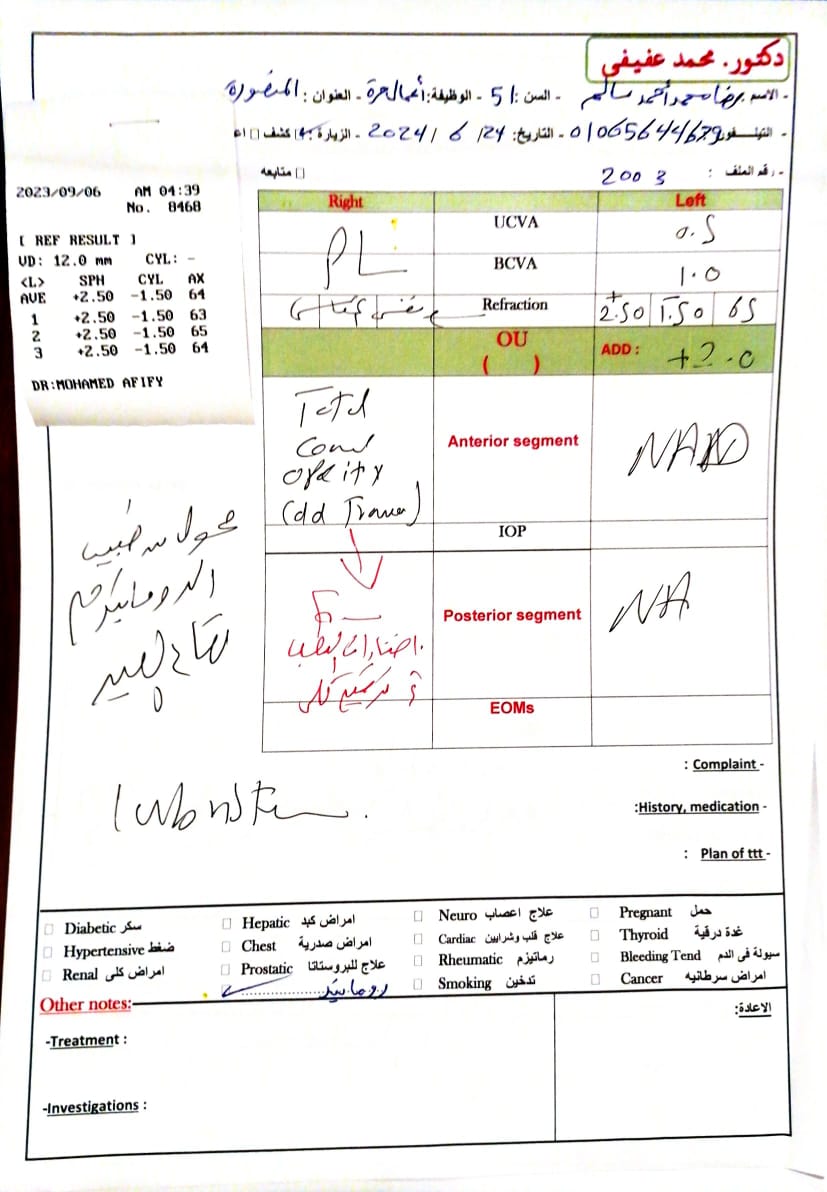 دكتور. محمد عفيفي
- الاسم: رضا محمد أحمد سالم - السن: 51 - الوظيفة: أعمال حرة - العنوان: المنصورة
- التليفون: 01065644679 - التاريخ: 24/ 6 /2024 - الزيارة: كشف □
□ متابعه
- رقم الملف : 2003
2023/09/06 AM 04:39
No. 8468
[ REF RESULT ]
VD: 12.0 mm CYL: -
<L> SPH CYL AX
AVE +2.50 -1.50 64
1 +2.50 -1.50 63
2 +2.50 -1.50 65
3 +2.50 -1.50 64
DR:MOHAMED AFIFY
Right Left
PL UCVA 0.5
BCVA 1.0
Refraction +2.50 1.50 65
OU
( )
ADD : +2.0
Total
Corneal
Opacity
(old Trauma)
Anterior segment NAD
IOP
محول من طبيب
الروماتيزم
Posterior segment NA
EOMs
: Complaint -
:History, medication -
: Plan of ttt -
□ Diabetic سكر □ Hepatic امراض كبد □ Neuro علاج اعصاب □ Pregnant حمل
□ Hypertensive ضغط □ Chest امراض صدرية □ Cardiac علاج قلب وشرايين □ Thyroid غدة درقية
□ Renal امراض كلى □ Prostatic علاج للبروستاتا □ Rheumatic رماتيزم □ Bleeding Tend سيولة فى الدم
□ Smoking تدخين □ Cancer امراض سرطانيه
Other notes:
الاعادة:
-Treatment :
-Investigations :